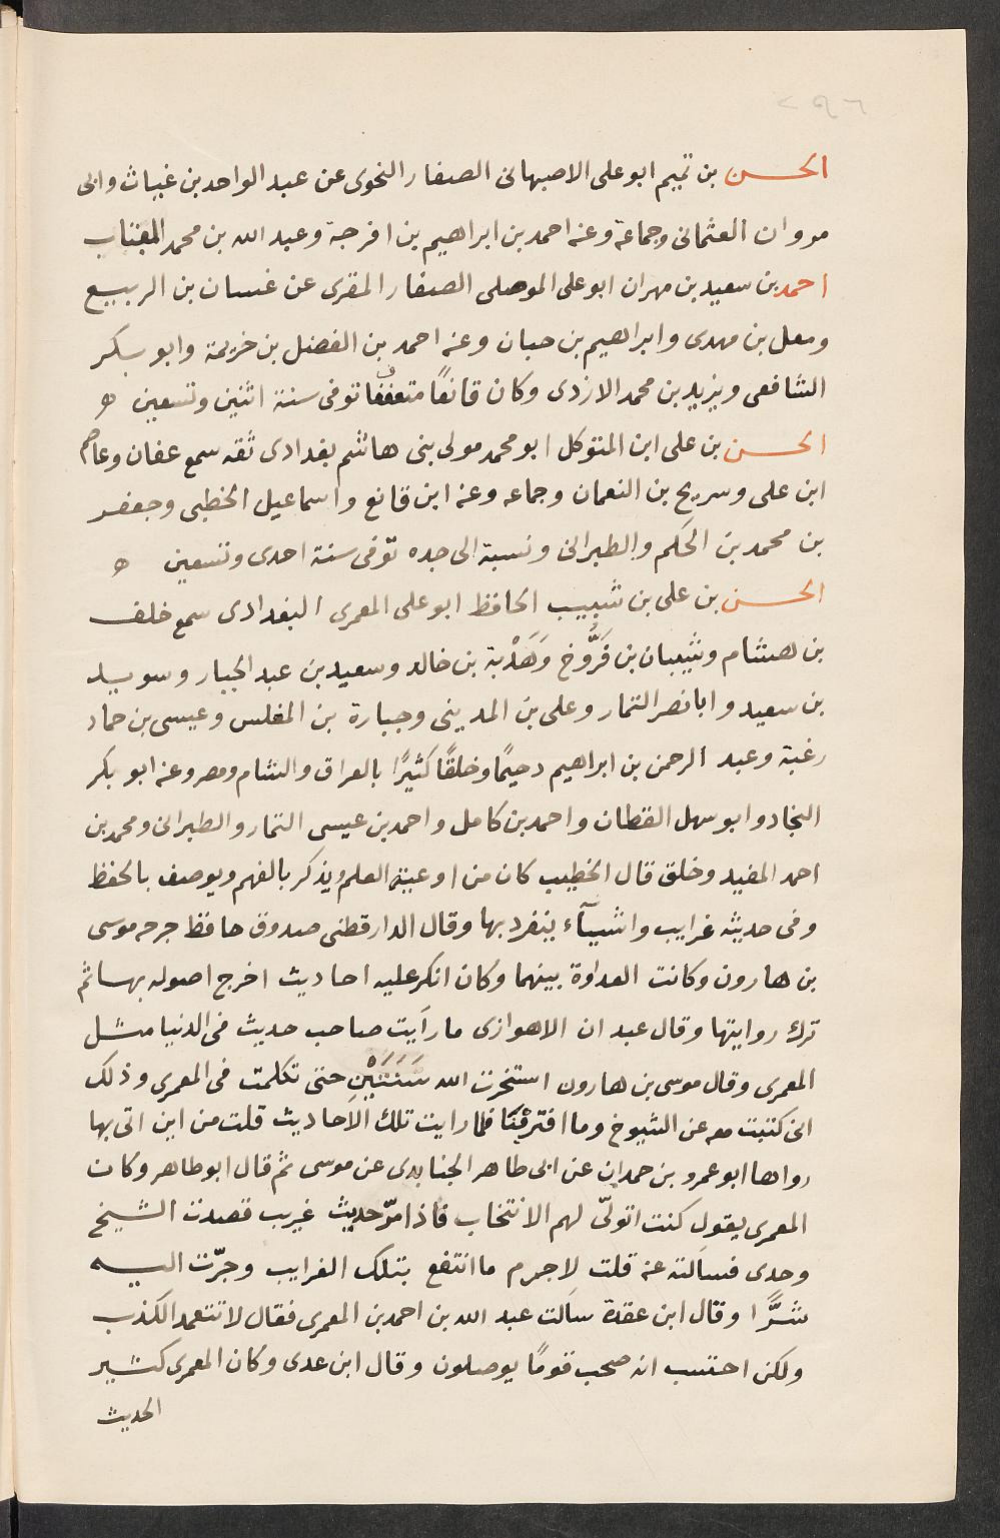 ٢٩٦
الحسن بن تميم ابو على الاصبهانى الصفار النحوى عن عبد الواحد بن غياث وابى
مروان العثمانى وجماعة وعنه احمد بن ابراهيم بن افرجة وعبد الله بن محمد القباب
احمد بن سعيد بن مهران ابو على الموصلى الصفار المقرى عن غسان بن الربيع
ومعلى بن مهدى وابراهيم بن حبان وعنه احمد بن الفضل بن خزيمة وابو بكر
الشافعى ويزيد بن محمد الازدى وكان قانعًا متعففا توفى سنة اثنين وتسعين ه
الحسن بن على ابن المتوكل ابو محمد مولى بنى هاشم بغدادى ثقه سمع عفان وعاصم
ابن على وسريح بن النعمان وجماعه وعنه ابن قانع واسماعيل الخطبى وجعفر
بن محمد بن الحكم والطبرانى ونسبة الى جده توفى سنة احدى وتسعين ه
الحسن بن على بن شبيب الحافظ ابو على المعمرى البغدادى سمع خلف
بن هشام وشيبان بن فَرُّوخ وَهَدْبة بن خالد وسعيد بن عبد الجبار وسويد
بن سعيد وابا نصر التمار وعلى بن المدينى وجبارة بن المغلس وعيسى بن حماد
زغبة وعبد الرحمن بن ابراهيم دحيمًا وخلقًا كثيرًا بالعراق والشام ومصر وعنه ابو بكر
النجاد وابو سهل القطان واحمد بن كامل واحمد بن عيسى التمار والطبرانى ومحمد بن
احمد المفيد وخلق قال الخطيب كان من اوعية العلم يذكر بالفهم ويوصف بالحفظ
وفى حديثه غرايب واشيآء ينفرد بها وقال الدارقطنى صدوق حافظ جرحه موسى
بن هارون وكانت العداوة بينهما وكان انكر عليه احاديث اخرج اصوله بها ثم
ترك روايتها وقال عبد ان الاهوازى ما رايت صاحب حديث فى الدنيا مثل
المعمرى وقال موسى بن هارون استخرت الله سَنَتَيْنِ حتى تكلمت فى المعمرى وذلك
انى كتبت معه عن الشيوخ وما افترقنا فلما رايت تلك الاحاديث قلت من اين اتى بها
رواها ابو عمرو بن حمدان عن ابى طاهر الجنابدى عن موسى ثم قال ابو طاهر وكان
المعمرى يقول كنت اتولّى لهم الانتخاب فاذا مرّ حديث غريب قصدت الشيخ
وحدى فسالته عنه قلت لا جرم ما انتفع بتلك الغرايب وجرّت اليه
شرًّا وقال ابن عقدة سالت عبد الله بن احمد بن المعمرى فقال لا تتعمد الكذب
ولكن احتسب انه صحب قومًا يوصلون وقال ابن عدى وكان المعمرى كثير
الحديث